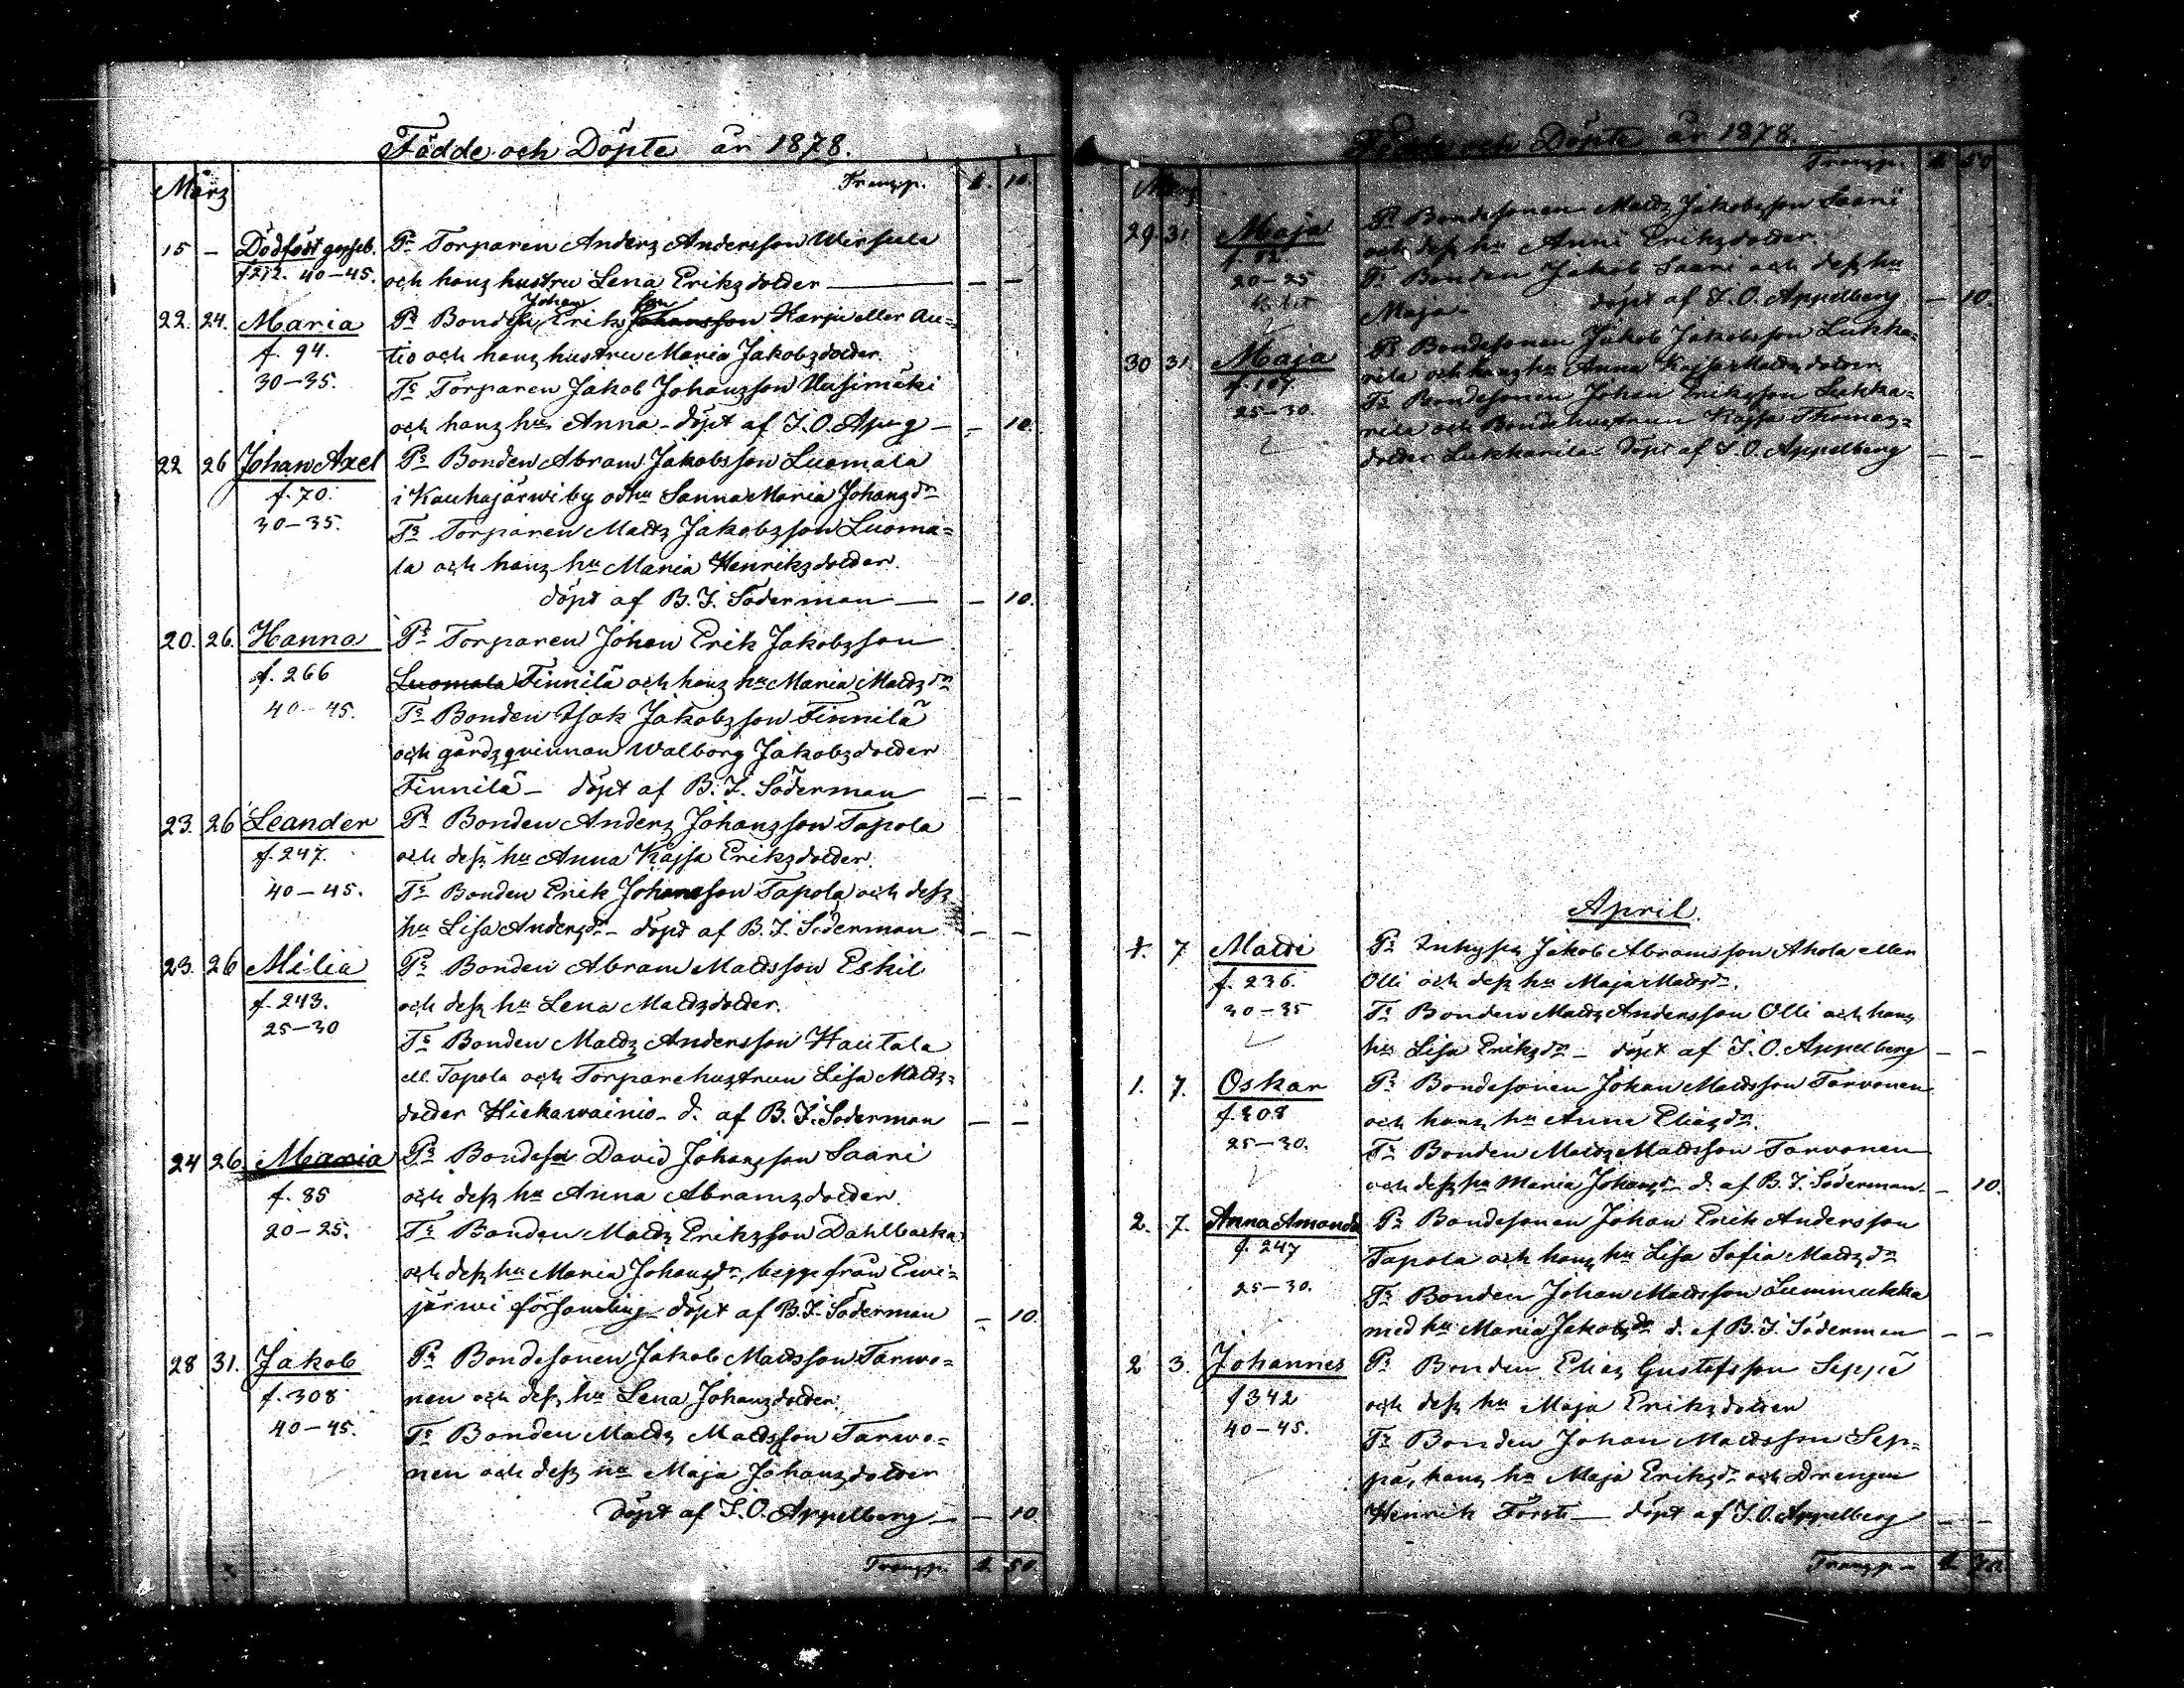 Födde och Döpte år 1878.
Mars
Transp. 1. 10.
15 — Dödfödt gosseb. Pr Torparen Anders Andersson Wirsula
f 212. 40–45. och hans hustru Lena Eriksdotter — — —
22. 24. Maria Pr Bondes. Erik Johansson Johansson Harju eller Au=
f. 94. tio och hans hustru Maria Jakobsdotter.
30–35. Tr Torparen Jakob Johansson Uusimäki
och hans hu Anna – döpt af J.O. Ap-g — – 10.
22 26 Johan Axel Pr Bonden Abram Jakobsson Luomala
f. 70. i Kauhajärwi by och hu Sanna Maria Johansdr
30–35. Tr Torparen Matts Jakobsson Luoma=
la och hans hu Maria Henriksdotter.
döpt af B.J. Söderman — – 10.
20. 26. Hanna Pr Torparen Johan Erik Jakobsson
f. 266 Luomala Finnilä och hans hu Maria Mattsdr
40–45. Tr Bonden Isak Jakobsson Finnilä
och gårdsqvinnan Walborg Jakobsdotter
Finnilä – döpt af B.J. Söderman — —
23. 26 Leander Pr Bonden Anders Johansson Tapola
f. 247. och dess hu Anna Kajsa Eriksdotter.
40–45. Tr Bonden Erik Johansson Tapola och dess
hu Lisa Andersdr – döpt af B.J. Söderman — —
23. 26 Milia Pr Bonden Abram Mattsson Eskil
f. 243. och dess hu Lena Mattsdotter.
25–30 Tr Bonden Matts Andersson Hautala
ell. Tapola och Torparehustrun Lisa Matts=
dotter Hietawainio – d. af B.J. Söderman — —
24 26 Maria Pr Bondes. David Johansson Saari
f. 85 och dess hu Anna Abramsdotter.
20–25. Tr Bonden Matts Eriksson Dahlbacka
och dess hu Maria Johansdr, begge från Ewi=
järwi församling – döpt af B.J. Söderman – 10.
28 31. Jakob Pr Bondesonen Jakob Mattsson Tarwo=
f. 308 nen och dess hu Lena Johansdotter.
40–45. Tr Bonden Matts Mattsson Tarwo=
nen och dess hu Maja Johansdotter
döpt af J.O. Appelberg — – 10.
Transp. 1. 50.
Födde och Döpte år 1878.
Mars
Transp. 1 50
29. 31. Maja Pr Bondesonen Matts Jakobsson Saari
f. 82 och dess hu Anni Eriksdotter.
20–25 Tr Bonden Jakob Saari och dess hu
Maja – döpt af J.O. Appelberg – 10.
30 31 Maja Pr Bondesonen Jakob Jakobsson Lukka=
f. 107 rila och hans hu Anna Kajsa Mattsdotter.
25–30. Tr Bondesonen Johan Eriksson Lukka=
rila och Bondehustrun Kajsa Thomas=
dotter Lukkarila döpt af J.O. Appelberg — —
April.
1. 7 Matti Pr Inhyses Jakob Abramsson Ahola eller
f. 236. Olli och dess hu Maja Mattsdr.
30–35 Tr Bonden Matts Andersson Olli och hans
hu Lisa Eriksdr – döpt af J.O. Appelberg — —
1. 7. Oskar Pr Bondesonen Johan Mattsson Tarvonen
f. 308 och hans hu Anna Eliasdr.
25–30. Tr Bonden Matts Mattsson Tarvonen
och dess hu Maria Johansdr d. af B.J. Söderman – 10.
2. 7. Anna Amanda Pr Bondesonen Johan Erik Andersson
f. 247 Tapola och hans hu Lisa Sofia Mattsdr
25–30. Tr Bonden Johan Mattsson Lummukka
med hu Maria Jakobsdr d. af B.J. Söderman — —
2 3. Johannes Pr Bonden Elias Gustafsson Seppä
f 342 och dess hu Maja Eriksdotter
40–45. Tr Bonden Johan Mattsson Sep=
pä, hans hu Maja Eriksdr och Drengen
Henrik Försti — döpt af J.O. Appelberg — —
Transp – 1. 70.